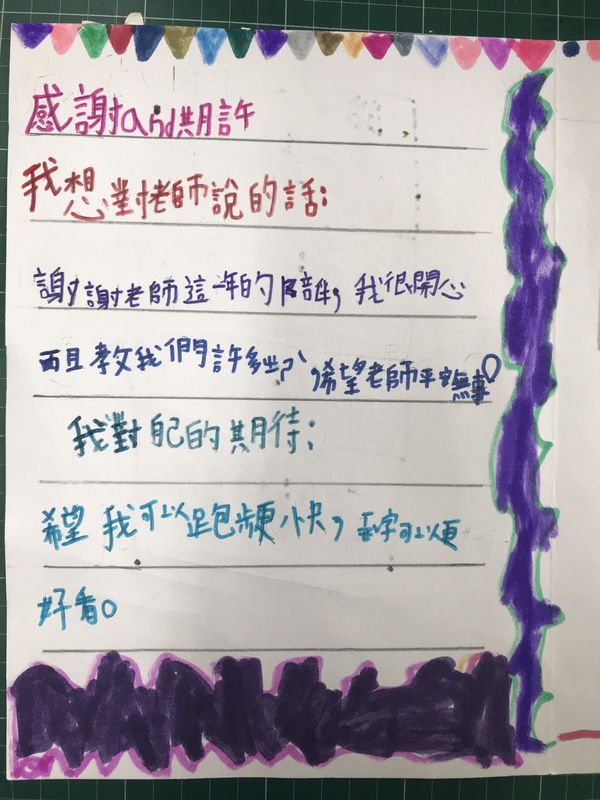 感謝and期許
我想對老師說的話:
謝謝老師這一年的陪伴,我很開心
而且教我們許多,希望老師平安無事。
我對自己的期待:
希望我可以跑步更快,字可以更
好看。